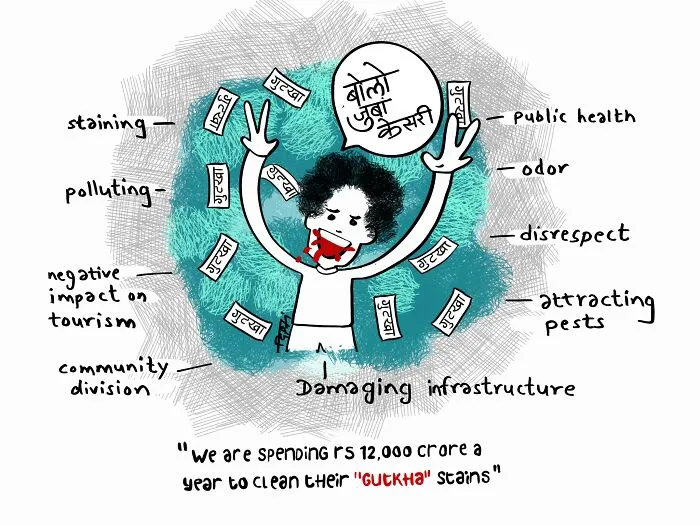 बोलो
जुबा
केसरी
गुटखा
गुटखा
गुटखा
गुटखा
गुटखा
गुटखा
गुटखा
गुटखा
गुटखा
गुटखा
staining
polluting
negative
impact on
tourism
community
division
public health
odor
disrespect
attracting
pests
Damaging infrastructure
"We are spending rs 12,000 crore a
year to clean their "Gutkha" stains"